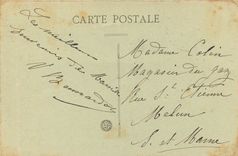 CARTE POSTALE
Les meilleurs
souvenirs de
Madame Colin
Magasin du gaz
Rue St Etienne
Melun
S. et Marne